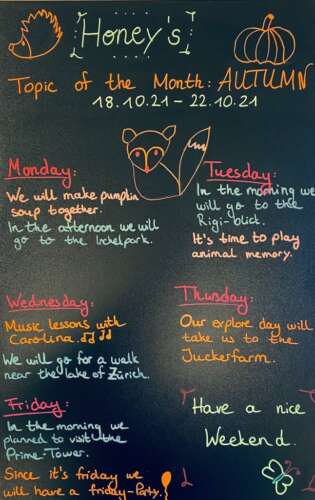 Honey's
Topic of the Month: AUTUMN
18.10.21 - 22.10.21
Monday:
We will make pumpkin
soup together.
In the afternoon we will
go to the Irchelpark.
Tuesday:
In the morning we
will go to the
Rigi-blick.
It's time to play
animal memory.
Wednesday:
Music lessons with
Carolina ♫♩♩
We will go for a walk
near the lake of Zürich.
Thursday:
Our explore day will
take us to the
Juckerfarm.
Friday:
In the morning we
planned to visit the
Prime-Tower.
Since it's friday we
will have a friday-Party.
Have a nice
Weekend.